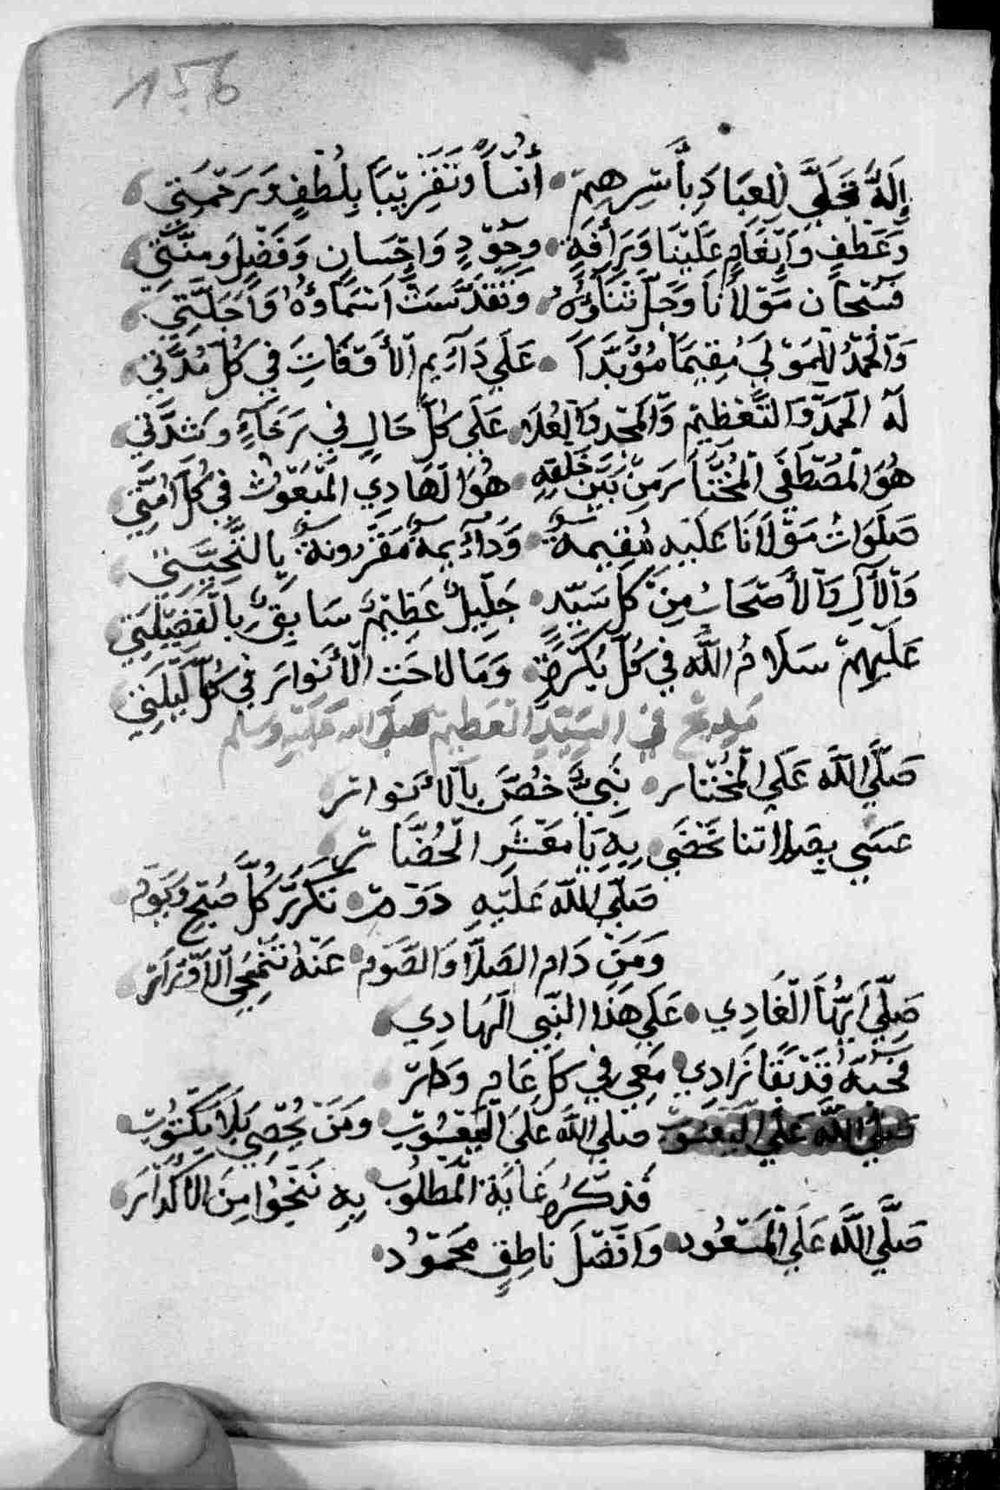 156
إِلَهٌ تَجَلَّى لِلْعِبَادِ بِأَسْرِهِمْ • أُنْسًا وَتَقْرِيبًا بِلُطْفٍ وَرَحْمَتِي
وَعَطْفٍ وَإِنْعَامٍ عَلَيْنَا وَرَأْفَةٍ • وَجُودٍ وَإِحْسَانٍ وَفَضْلٍ وَمِنَّتِي
فَسُبْحَانَ مَوْلَانَا وَجَلَّ ثَنَاؤُهُ • وَتَقَدَّسَتْ أَسْمَاؤُهُ وَأَجَلَّتِي
وَالْحَمْدُ لِلْمَوْلَى مُقِيمًا مُؤَبَّدًا • عَلَى دَائِمِ الْأَوْقَاتِ فِي كُلِّ مُدَّتِي
لَهُ الْحَمْدُ وَالتَّعْظِيمُ وَالْمَجْدُ وَالْعُلَا • عَلَى كُلِّ حَالٍ فِي رَخَاءٍ وَشِدَّتِي
هُوَ الْمُصْطَفَى الْمُخْتَارُ مِنْ بَيْنِ خَلْقِهِ • هُوَ الْهَادِي الْمَبْعُوثُ فِي كُلِّ أُمَّتِي
صَلَوَاتُ مَوْلَانَا عَلَيْهِ مُقِيمَةٌ • وَدَائِمَةٌ مَقْرُونَةٌ بِالتَّحِيَّتِي
وَالْآلِ وَالْأَصْحَابِ مِنْ كُلِّ سَيِّدٍ • جَلِيلٌ عَظِيمٌ سَابِقٌ بِالْفَضِيلَتِي
عَلَيْهِمْ سَلَامُ اللَّهِ فِي كُلِّ بُكْرَةٍ • وَمَا لَاحَتِ الْأَنْوَارُ فِي كُلِّ لَيْلَتِي
مديح في السيد العظيم صلى الله عليه وسلم
صَلَّى اللَّهُ عَلَى الْمُخْتَارِ • نَبِيٌّ خُصَّ بِالْأَنْوَارِ
عَسَى بِصَلَاتِنَا نَحْضَى • بِهِ يَا مَعْشَرَ الْحُضَّارِ
صَلَّى اللَّهُ عَلَيْهِ دَوْمٌ • تَكَرَّرْ كُلَّ صُبْحٍ وَيَوْمٍ
وَمَنْ دَامَ الصَّلَا وَالصَّوْمْ • عَنْهُ تَنْمَحِي الْأَوْزَارُ
صَلِّي أَيُّهَا الْغَادِي • عَلَى هَذَا النَّبِي الْهَادِي
فَحُبُّهُ قَدْ بَقَا زَادِي • مَعِي فِي كُلِّ عَامٍ وَطَرْ
صَلَّى اللَّهُ عَلَى صَلَّى اللَّهُ عَلَى • وَمَنْ
فَذِكْرُهُ غَايَةُ الْمَطْلُوبِ • بِهِ نَنْجُوا مِنَ الْأَكْدَارِ
صَلَّى اللَّهُ عَلَى الْمَسْعُودِ • وَأَفْضَلَ نَاطِقٍ مَحْمُودٍ •